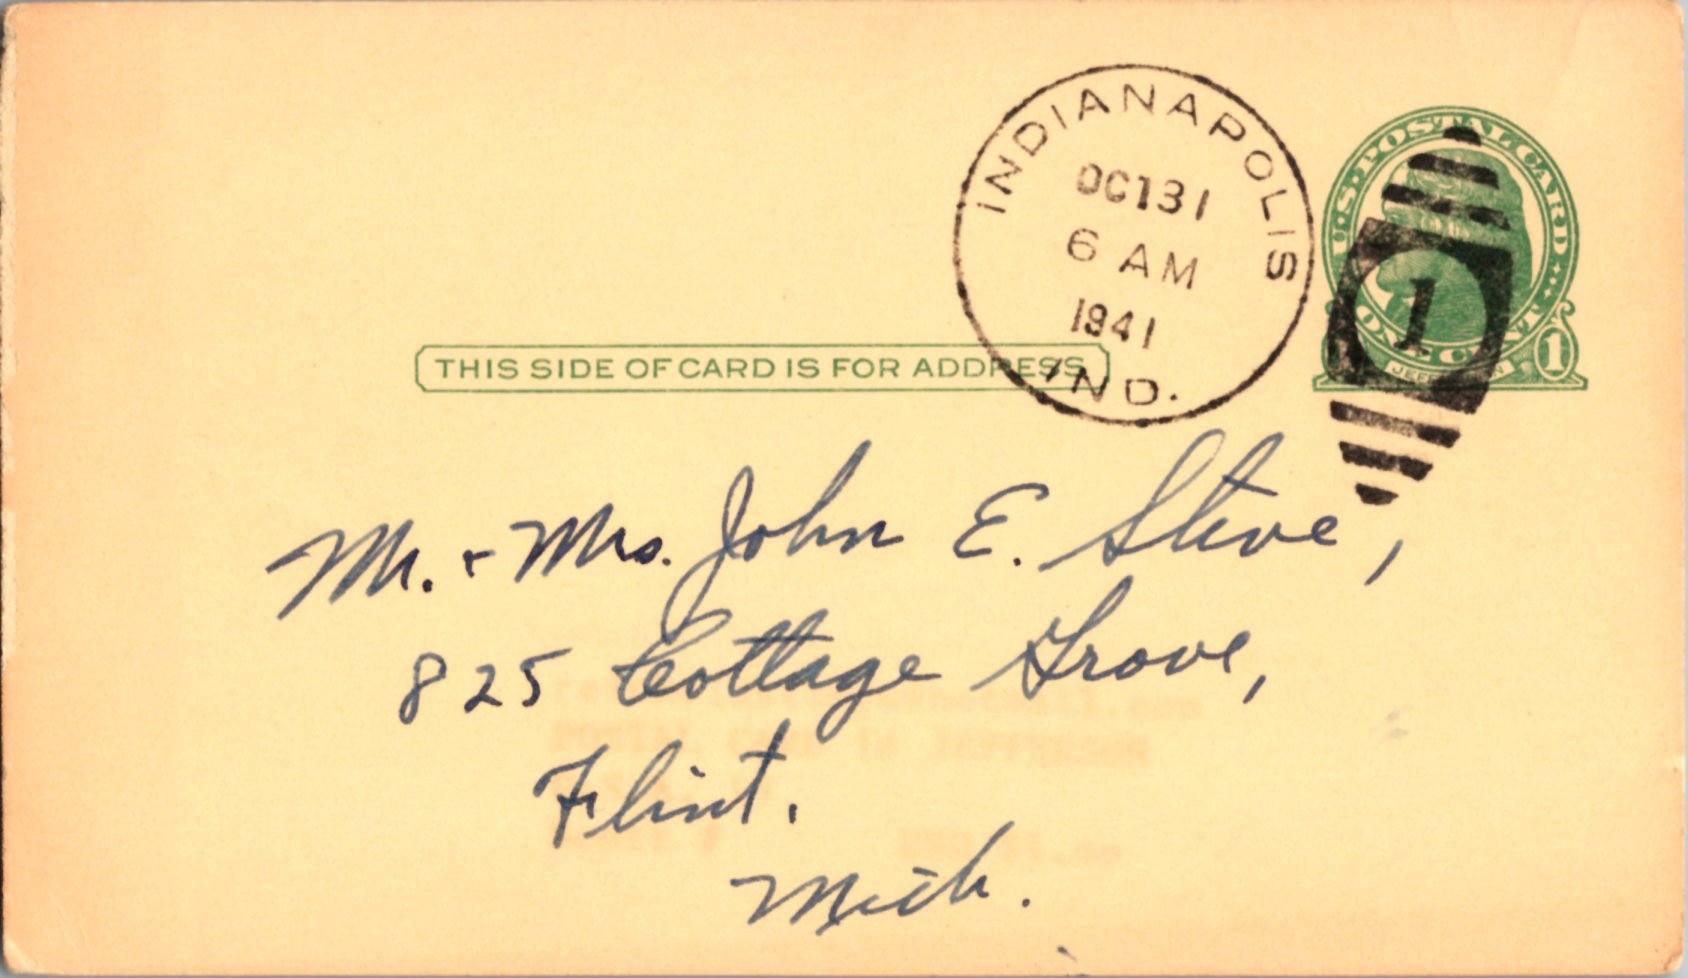 INDIANAPOLIS
OCT 31
6 AM
1941
IND.
U.S. POSTAL CARD
1
ONE CENT
1
THIS SIDE OF CARD IS FOR ADDRESS
Mr. + Mrs. John E. Steve,
825 Cottage Grove,
Flint.
Mich.